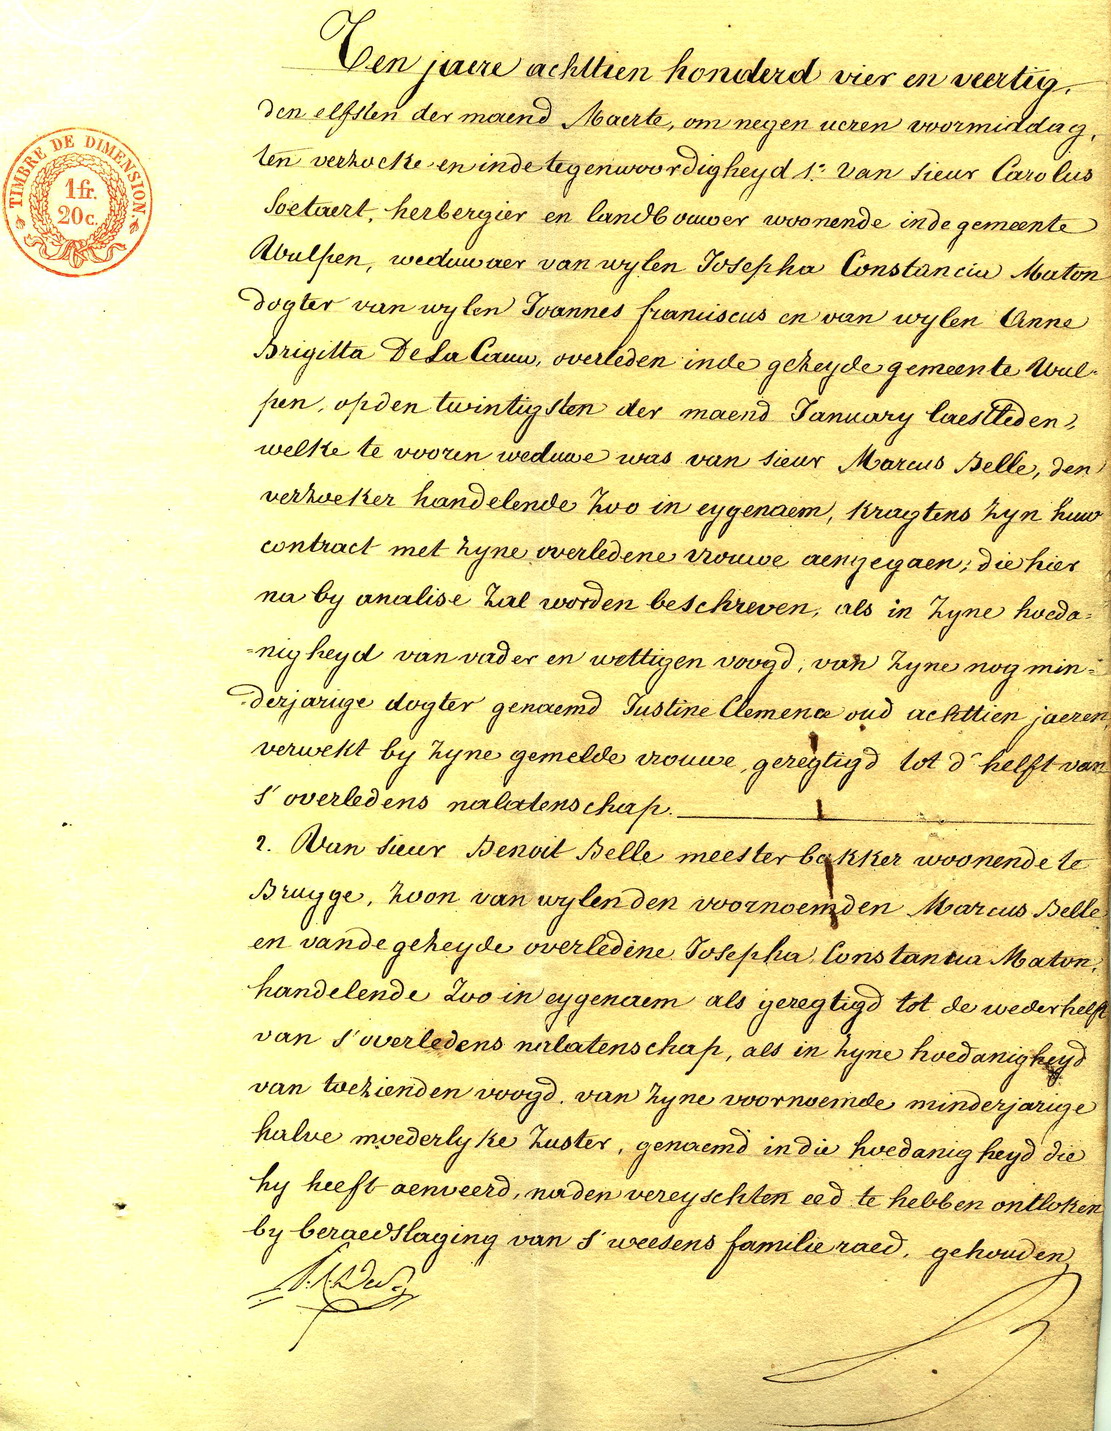 TIMBRE DE DIMENSION
1 fr.
20 c.
Ten jaere achttien honderd vier en veertig,
den elfsten der maend Maerte, om negen ueren voormiddag,
ten verzoeke en inde tegenwoordigheyd 1.° van sieur Carolus
Soetaert, herbergier en landbouwer woonende inde gemeente
Wulpen, weduwaer van wylen Josepha Constancia Maton
dogter van wylen Joannes franciscus en van wylen Anne
Brigitta De La Cauw, overleden inde gezeyde gemeente Wul-
pen, opden twintigsten der maend January laestleden,
welke te vooren weduwe was van sieur Marcus Belle, den
verzoeker handelende zoo in eygenaem, kragtens zyn huw
contract met zyne overledene vrouwe aengegaen; die hier
na by analise zal worden beschreven, als in zyne hoeda=
=nigheyd van vader en wettigen voogd, van zyne nog min=
derjarige dogter genaemd Justine Clemence oud achttien jaeren,
verwekt by zyne gemelde vrouwe, geregtigd tot d' helft van
s' overledens nalatenschap.
2. Van sieur Benoit Belle meester bakker woonende te
Brugge, zoon van wylen den voornoemden Marcus Belle
en vande gezeyde overledene Josepha Constantia Maton,
handelende zoo in eygenaem als geregtigd tot de wederhelft
van s' overledens nalatenschap, als in zyne hoedanigheyd
van toezienden voogd. van zyne voornoemde minderjarige
halve moederlyke zuster, genaemd in die hoedanigheyd die
hy heeft aenveerd, naden vereyschten eed te hebben ontloken
by beraedslaging van s' weesens familieraed, gehouden